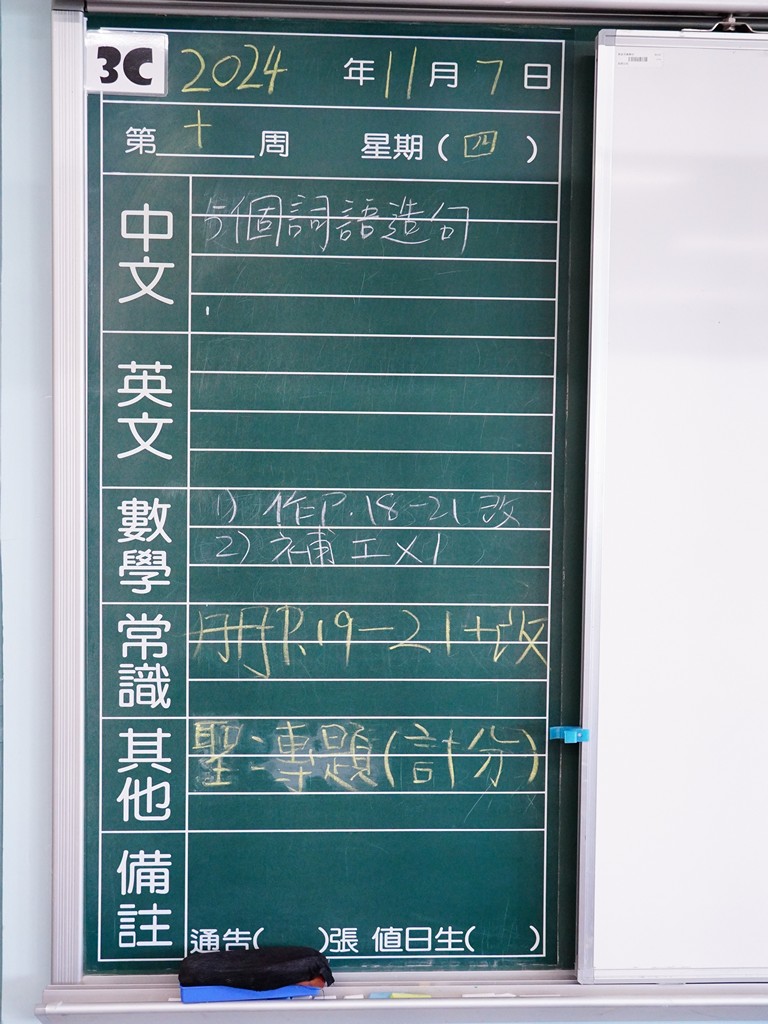 3C 2024 年 11 月 7 日
第 十 周 星期 ( 四 )
中文 5個詞語造句
英文
數學 1) 作P.18-21改
2) 補工X1
常識 冊P.19-21+改
其他 聖:專題(計分)
備註
通告( )張 值日生( )